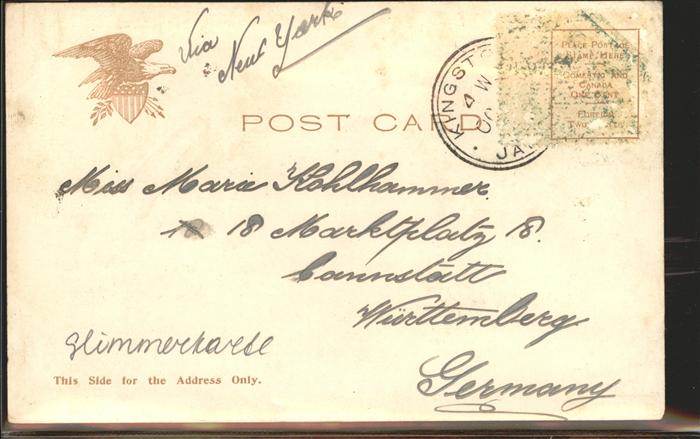 Via
New York
PLACE POSTAGE
STAMP HERE
DOMESTIC AND
CANADA
ONE CENT
FOREIGN
TWO CENTS
KINGSTON
JA
POST CARD
Miss Marie Kohlhammer
18 Marktplatz 18.
Cannstatt
Württemberg
Germany
Glimmerkarte
This Side for the Address Only.